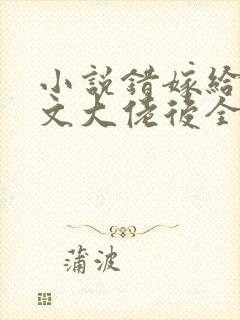 小說錯嫁給
文大佬後全
蒲波